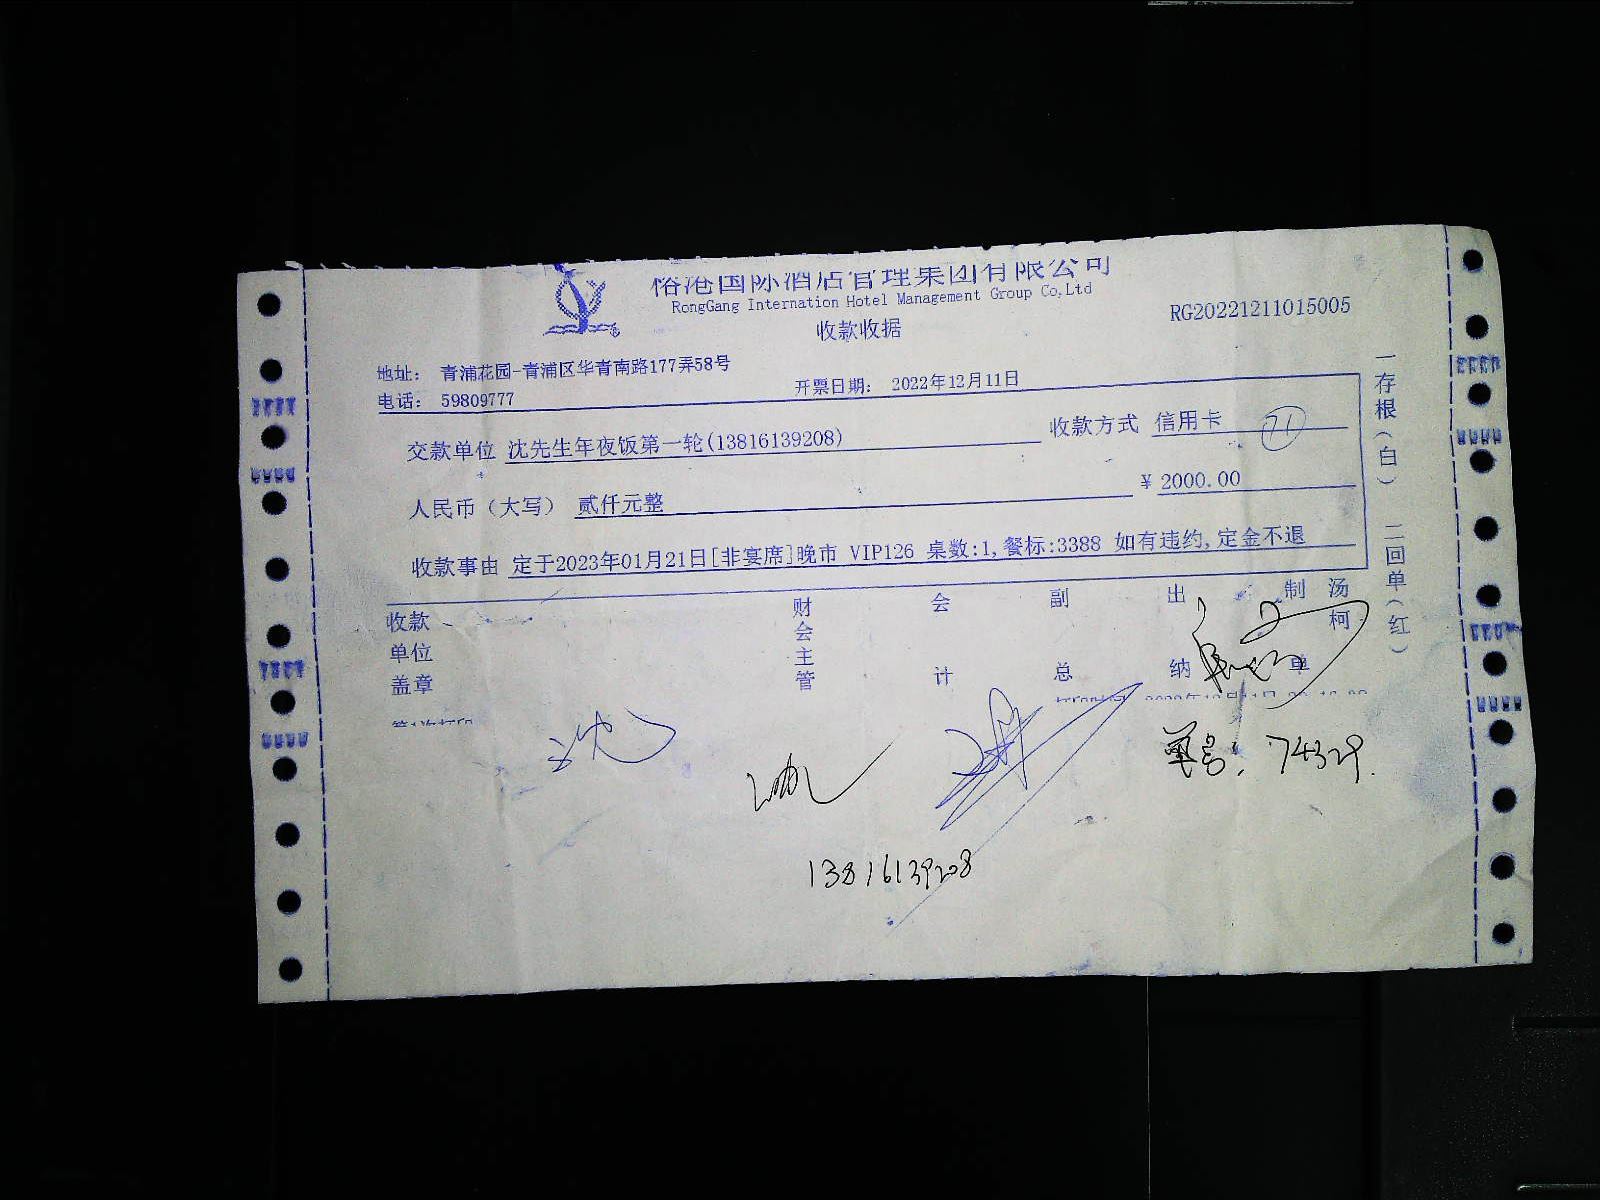 国际酒店管理集团有限公司
RongGang Internation Hotel Management Group Co,Ltd
收款收据
RG20221211015005
地址： 青浦花园-青浦区华青南路177弄58号
电话： 59809777
开票日期： 2022年12月11日
交款单位 沈先生年夜饭第一轮(13816139208)
收款方式 信用卡
71
人民币（大写） 贰仟元整
¥ 2000.00
收款事由 定于2023年01月21日[非宴席]晚市 VIP126 桌数:1,餐标:3388 如有违约,定金不退
一存根（白） 二回单（红）
收款单位盖章
财会主管
会计
副总
出纳
制单
汤柯
沈
单号: 74329.
13816139208